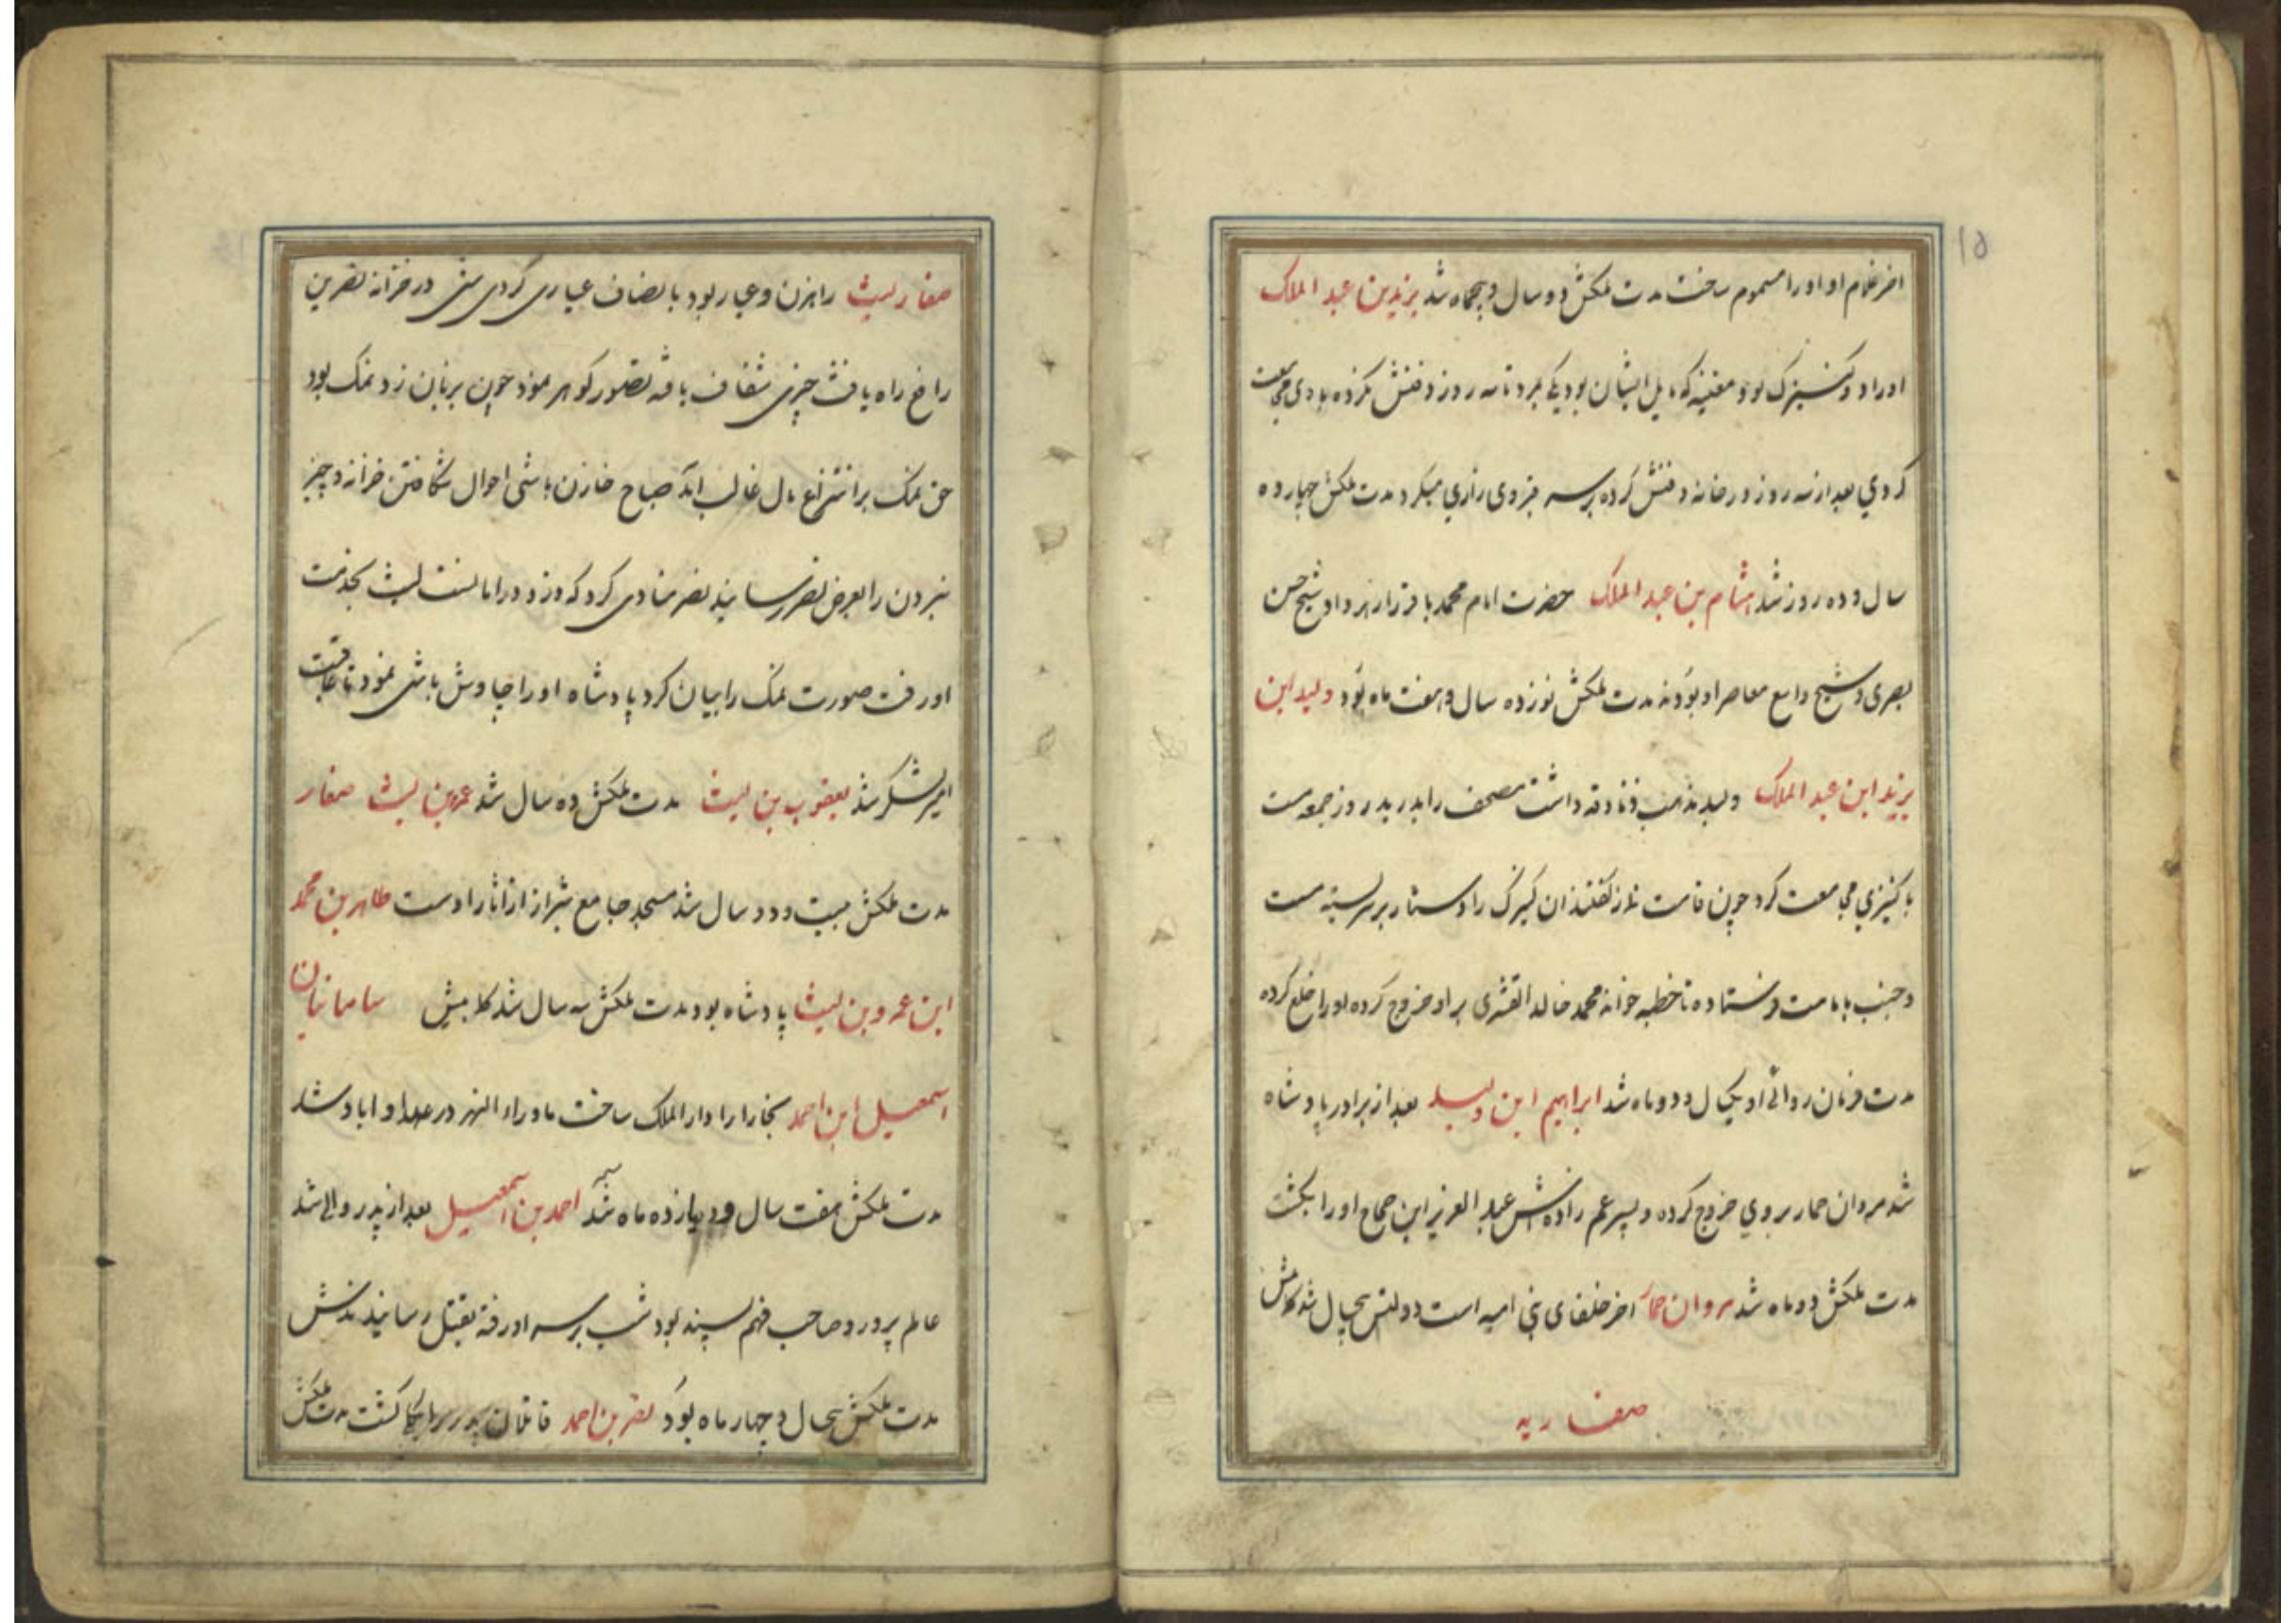 اخر غلام او او را مسموم ساخت مدت ملکش دو سال و پنجماه شد یزید بن عبد الملک
او را دو کنیزک بود مغنیه که مایل ایشان بود یکی بمرد تا سه روز دفنش نکرده با وی مجامعت
کردی بعد از سه روز در خانه دفنش کرده بر سر قبر وی زاری میکرد مدت ملکش چهار ده
سال و ده روز شد هشام بن عبد الملک حضرت امام محمد باقر را زهر داد و شیخ حسن
بصری و شیخ واسع معاصر او بودند مدت ملکش نوزده سال و هفت ماه بود ولید ابن
یزید ابن عبد الملک ولید مذهب زنادقه داشت مصحف را بدرید روز جمعه مست
با کنیزی مجامعت کرد چون قامت نماز گفتند ان کنیزک را دستار بر سر بسته مست
و جنب بامامت فرستاده تا خطبه خواند محمد خالد القشری بر او خروج کرده او را خلع کرده
مدت فرمان روائی او یکسال و دو ماه شد ابراهیم ابن ولید بعد از برادر پادشاه
شد مروان حمار بر وی خروج کرده و پسر عم زاده اش عبد العزیز ابن حجاج او را بکشت
مدت ملکش دو ماه شد مروان حمار اخر خلفای بنی امیه است دولتش پنجسال شد کلامش
صفاریه
۱۵
صفار لیث راهزن و عیار بود بانصاف عیاری کردی شبی در خزانه نصر بن
رافع راه یافت چیزی شفاف یافته تصور گوهر نمود چون بر زبان زد نمک بود
حق نمک بر انتزاع مال غالب امد صباح خازن باشی احوال شکافتن خزانه و چیز
نبردن را بعرض نصر رسانید نصر منادی کرد که دزد در امانست لیث بخدمت
او رفت صورت نمک را بیان کرد پادشاه او را چاوش باشی نمود تا عاقبت
امیر لشکر شد یعقوب بن لیث مدت ملکش ده سال شد عمر بن لیث صفار
مدت ملکش بیست و دو سال شد مسجد جامع شیراز از اثار اوست طاهر بن محمد
ابن عمرو بن لیث پادشاه بود مدت ملکش سه سال شد کلامیش سامانیان
اسمعیل ابن احمد بخارا را دار الملک ساخت ماوراء النهر در عهد او اباد شد
مدت ملکش هفت سال و یازده ماه شد احمد بن اسمعیل بعد از پدر والی شد
عالم پرور و صاحب فهم پسند بود شب بر سر او رفته بقتل رسانیدندش
مدت ملکش پنجسال و چهار ماه بود نصر بن احمد قاتلان پدر را بکشت مدت ملکش